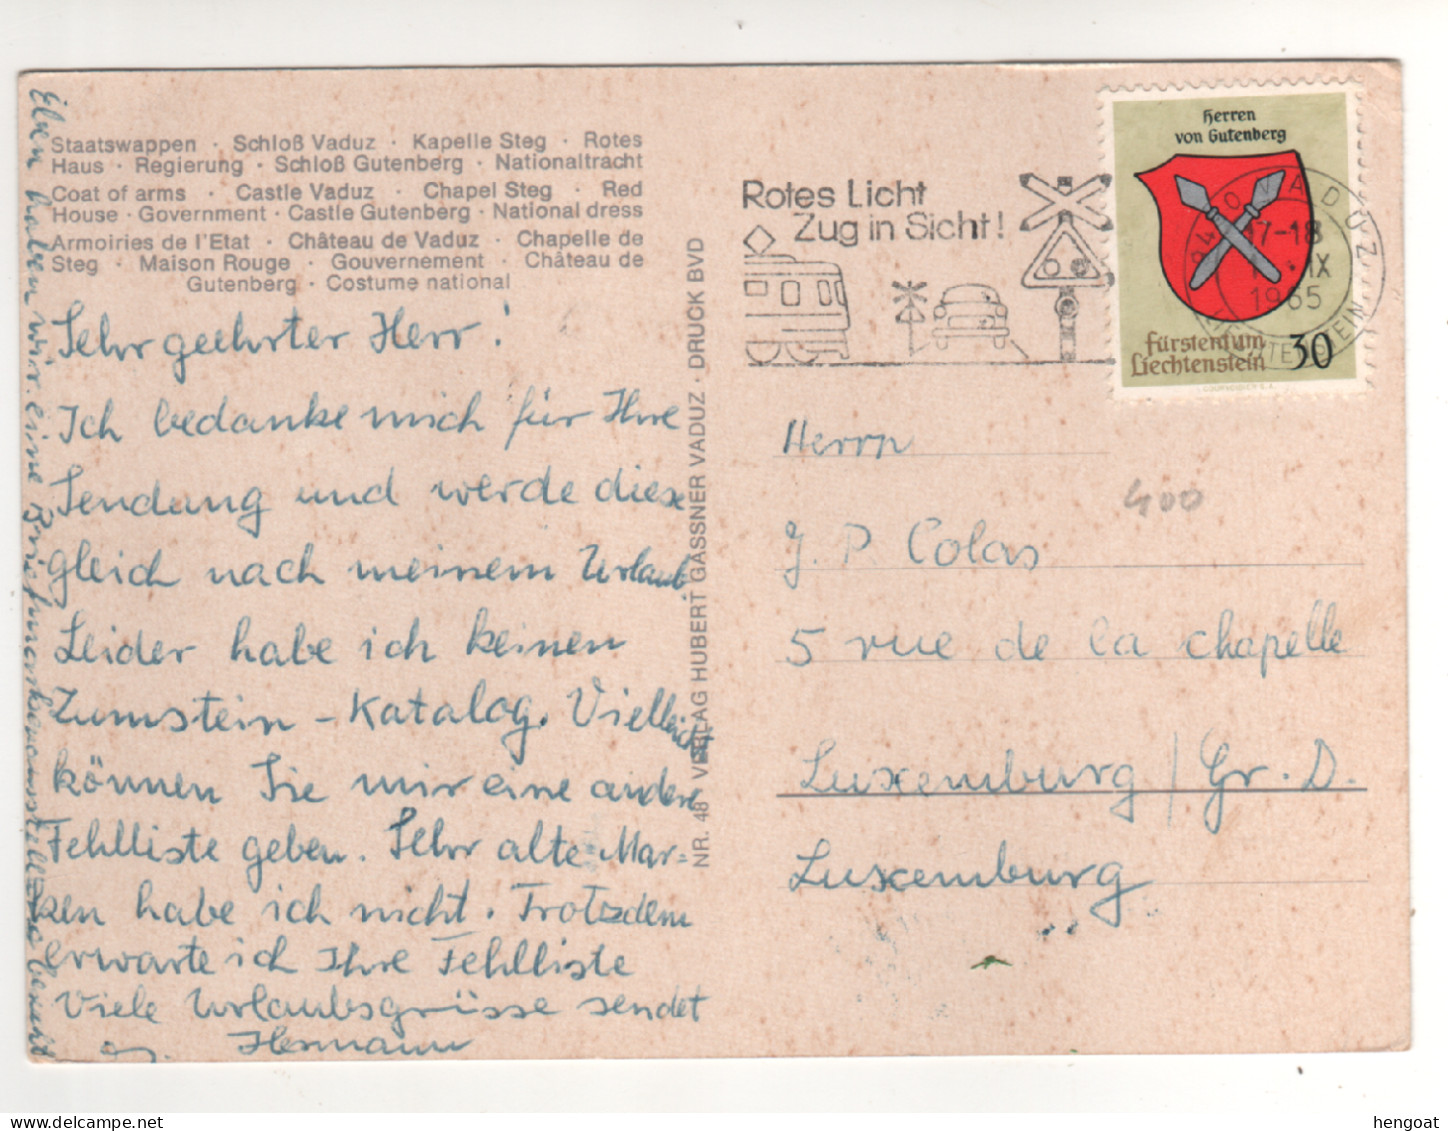 Staatswappen · Schloß Vaduz · Kapelle Steg · Rotes
Haus · Regierung · Schloß Gutenberg · Nationaltracht
Coat of arms · Castle Vaduz · Chapel Steg · Red
House · Government · Castle Gutenberg · National dress
Armoiries de l'Etat · Château de Vaduz · Chapelle de
Steg · Maison Rouge · Gouvernement · Château de
Gutenberg · Costume national
Sehr geehrter Herr!
Ich bedanke mich für Ihre
Sendung und werde diese
gleich nach meinem Urlaub.
Leider habe ich keinen
Zumstein - Katalog. Vielleicht
können Sie mir eine andere
Fehlliste geben. Sehr alte Mar=
ken habe ich nicht. Trotzdem
erwarte ich Ihre Fehlliste
Viele Urlaubsgrüsse sendet
Hermann
Eben haben wir eine Briefmarkenausstellung besucht
NR. 48 VERLAG HUBERT GASSNER VADUZ · DRUCK BVD
Rotes Licht
Zug in Sicht!
Herren
von Gutenberg
Fürstentum
Liechtenstein 30
COURVOISIER S.A.
9490 VADUZ
17-18
IX
1965
LIECHTENSTEIN
Herrn
400
J. P. Colas
5 rue de la chapelle
Luxemburg / Gr. D.
Luxemburg
hengoat